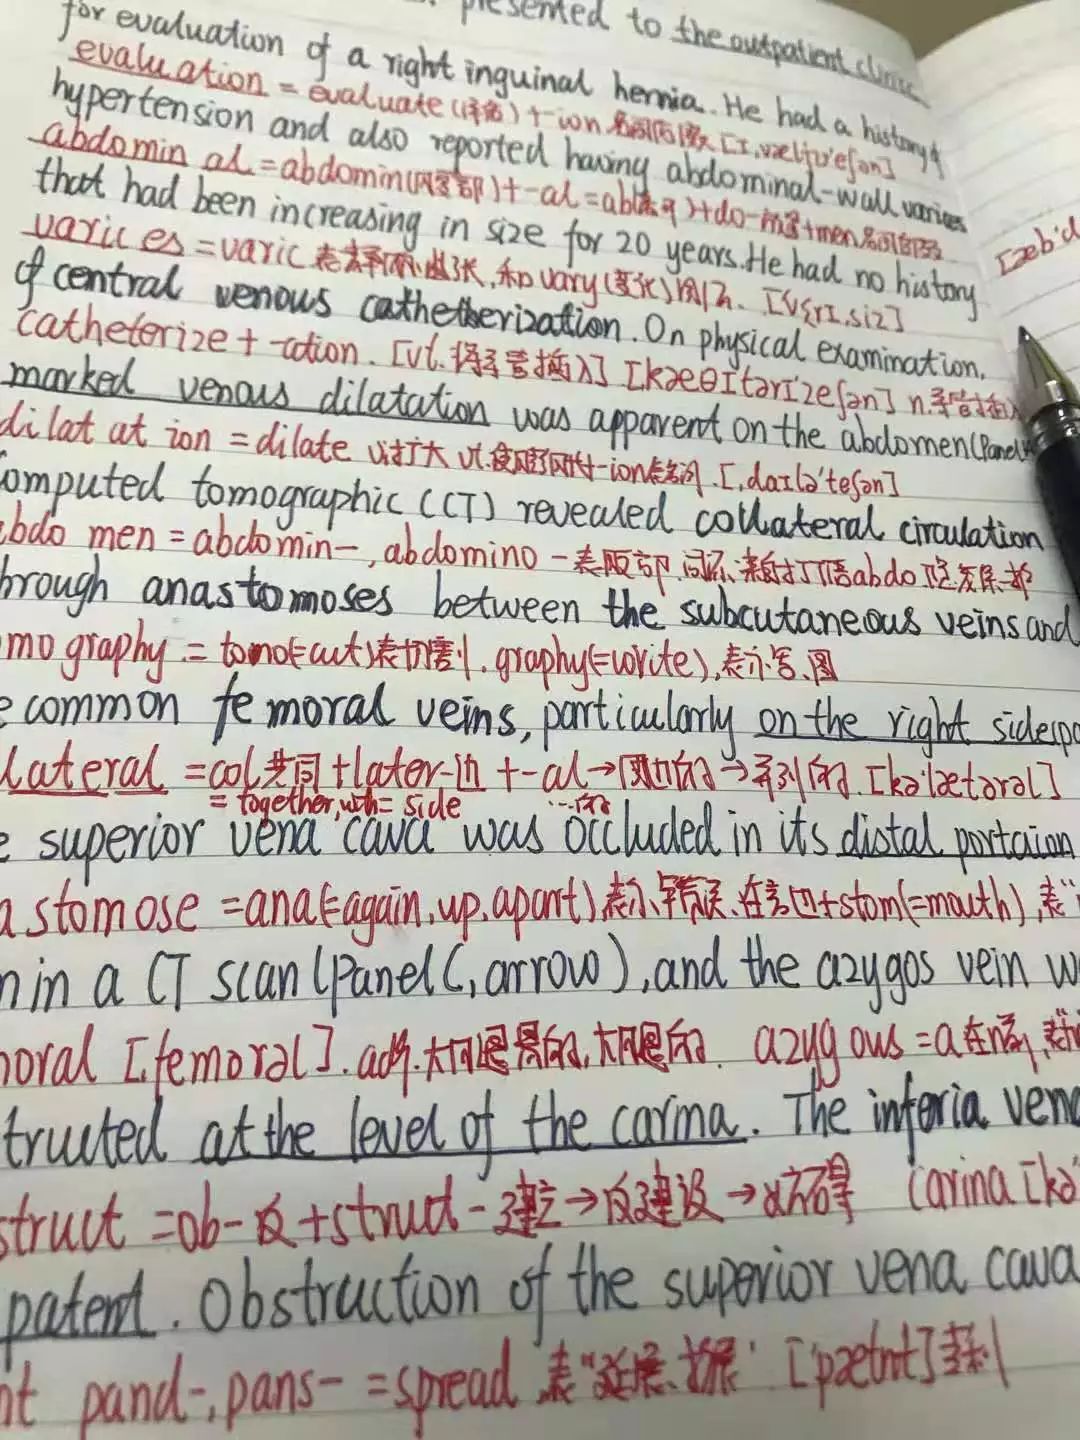 presented to the outpatient clinic
for evaluation of a right inguinal hernia. He had a history of
evaluation = evaluate (评估) + -ion 名词后缀 [I,væljʊ'eʃən]
hypertension and also reported having abdominal-wall varices
abdomin al = abdomin (内脏部) + -al = ab + do- + men
that had been increasing in size for 20 years. He had no history
varic es = varic 表静脉曲张, 和 vary (变化) 同源. [værI,siz]
of central venous cathetherization. On physical examination,
catheterize + -ation. [vt. 将导管插入] [kæθItərI'zeʃən] n. 导管插入
marked venous dilatation was apparent on the abdomen (Panel A
dilat at ion = dilate vi 扩大 vt. 使膨胀 + -ion 表名词. [,daIlə'teʃən]
omputed tomographic (CT) revealed collateral circulation
bdo men = abdomin-, abdomino- 表腹部. 同源. 来自拉丁语 abdo
hrough anastomoses between the subcutaneous veins and
mo graphy = tomo (= cut) 表切割. graphy (= write), 表示写、图
e common femoral veins, particularly on the right side (pa
lateral = col 共同 + later- 边 + -al → 同边的 → 并列的. [kə'lætərəl]
= together, with = side …的
e superior vena cava was occluded in its distal portaion
a stomose = ana (= again, up, apart), 表示 + stom (= mouth), 表“
n in a CT scan (Panel C, arrow), and the azygos vein w
moral [femorəl]. adj. 大腿骨的, 大腿的. azyg ous = a
tructed at the level of the carina. The inferia vena
struct = ob- 反 + struct- 建立 → 反建设 → 妨碍 carina [kə'
patent. Obstruction of the superior vena cava
nt pand-, pans- = spread 表“延展、扩展” ['pætnt]
[æb'd